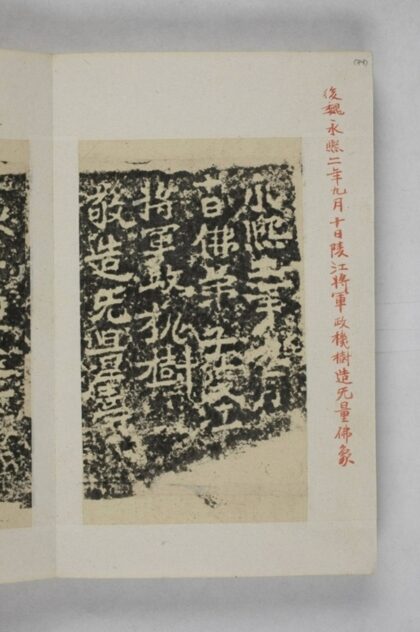 後魏永熙二年九月十日陵江將軍政機樹造无量佛象
永熙二年九月
十日佛弟子陵江
將軍政樹
敬造无量壽